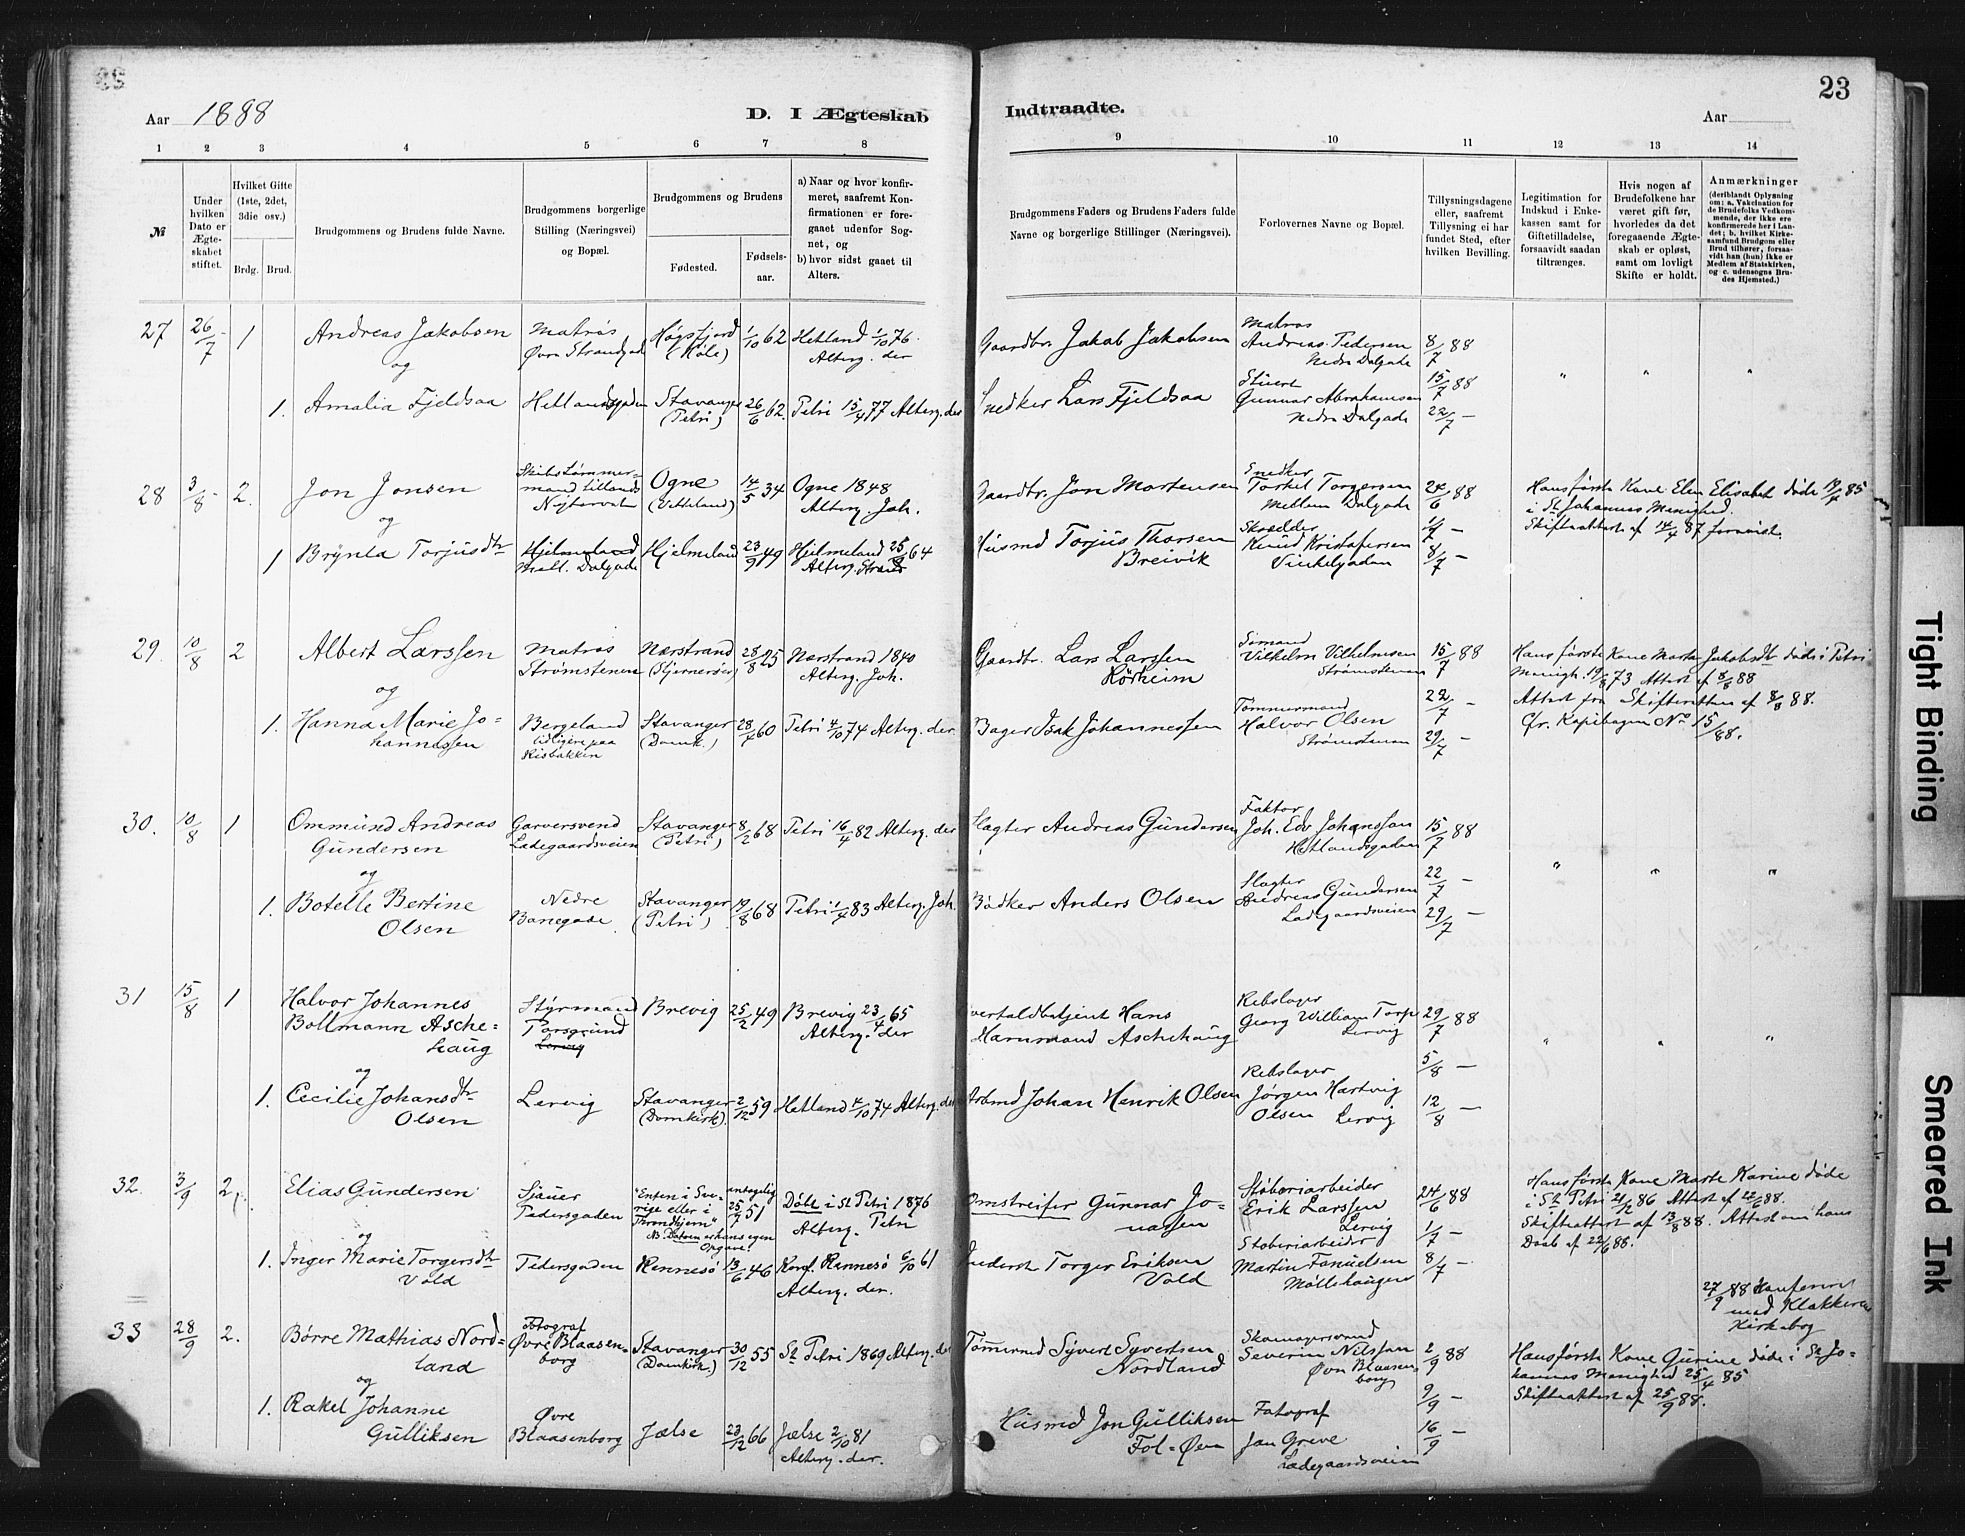 23
Aar 1888
D. I Ægteskab
Indtraadte.
Aar
1 2 3 4 5 6 7 8
9 10 11 12 13 14
№
Under hvilken Dato er Ægteskabet stiftet.
Hvilket Gifte (1ste, 2det, 3die osv.)
Brdg. Brud.
Brudgommens og Brudens fulde Navne.
Brudgommens borgerlige Stilling (Næringsvei) og Bopæl.
Brudgommens og Brudens
Fødested.
Fødselsaar.
a) Naar og hvor konfirmeret, saafremt Konfirmationen er foregaaet udenfor Sognet, og
b) hvor sidst gaaet til Alters.
Brudgommens Faders og Brudens Faders fulde Navne og borgerlige Stillinger (Næringsvei).
Forlovernes Navne og Bopæl.
Tillysningsdagene eller, saafremt Tillysning ei har fundet Sted, efter hvilken Bevilling.
Legitimation for Indskud i Enkekassen samt for Giftetilladelse, forsaavidt saadan tiltrænges.
Hvis nogen af Brudefolkene har været gift før, hvorledes da det foregaaende Ægteskab er opløst, samt om lovligt Skifte er holdt.
Anmærkninger (deriblandt Oplysning om: a. Vakcination for de Brudefolks Vedkommende, der ikke ere konfirmerede her i Landet; b. hvilket Kirkesamfund Brudgom eller Brud tilhører, forsaavidt han (hun) ikke er Medlem af Statskirken, og c. udensogns Brudes Hjemsted.)
27 26/7 1 Andreas Jakobsen
Matros Øvre Strandgad
Høgsfjord (Høle) 1/10 62 Hetland 1/10 76. Alterg. der
Gaardbr. Jakob Jakobsen
Matros Andreas Pedersen Nedre Dalgade
8/7 88
og
1. Amalia Fjeldsaa
Hetlandsgaden
Stavanger (Petri) 26/6 62. Petri 15/4 77 Alterg. der
Snedker Lars Fjeldsaa
Stuert Gunnar Abrahamsen Nedre Dalgade
15/7 88
22/7 —
" " "
28 3/8 2. Jon Jonsen
Skibstømmermand tillands Nytorvet
Ogne 14/5 34 Ogne 1848 Alterg. Joh.
Gaardbr. Jon Mortensen
Snedker Torkel Torgersen Mellem Dalgade
24/6 88
Hans første Kone Elen Elisabet døde 19/4 85
i St Johannes Menighed.
Skifteattest af 14/4 87 forevist.
og
1 Brynla Torjusdtr
Hjelmeland Mell. Dalgade
Hjelmeland 23/9 49 Hjelmeland 64
Husmd Torjus Thorsen Breivik
Skrædder Knud Kristofersen Vinkelgaden
1/7 —
8/7 —
29. 10/8 2 Albert Larssen
Matros Strømstenen
Nærstrand 28/8 25 Nærstrand 1840 Alterg. Joh.
Gaardbr. Lars Larssen
Vilhelm Vilhelmsen Strømstenen
15/7 88
Hans første Kone Marta Jakobsdtr døde i Petri
Menigh. 19/8 73 Attest af 8/8 88
Attest fra Skifteretten af 8/8 88.
Cfr. Kopibogen No 15/88.
og
1. Hanna Marie Johannessen
Bergeland tidligere paa Risbakken
Stavanger (Domk.) 28/4 60 Petri 4/10 74 Alterg. der
Bager Isak Johannessen
Tømmermand Halvor Olsen Strømstenen
22/7 —
29/7 —
30. 10/8 1 Ommund Andreas Gundersen
Garversvend Ladegaardsveien
Stavanger (Petri) 8/2 68 Petri 16/4 82 Alterg. der
Slagter Andreas Gundersen
Faktor Joh. Edv Johanssen Hetlandsgaden
15/7 88
" " "
og
1. Botelle Bertine Olsen
Nedre Banegade
Stavanger (Petri) 19/8 68 Petri 1/4 83 Alterg. Joh.
Bødker Anders Olsen
Slagter Andreas Gundersen Ladegaardsveien
22/7 —
29/7 —
31 15/8 1 Halvor Johannes Bollmann Aschehaug
Styrmand Porsgrund Lervig
Brevig 25/2 49 Brevig 23/4 65 Alterg. der
Hans Aschehaug
Rebslager Georg William Torp Lervig
29/7 88
" " "
og
1. Cecilie Johansdtr Olsen
Lervig
Stavanger (Domkirk.) 2/12 59 Hetland 4/10 74 Alterg. der
Arbmd Johan Henrik Olsen
Rebslager Jørgen Hartvig Olsen Lervig
5/8 —
12/8 —
32. 3/9 2. Elias Gundersen
Sjauer Pedersgaden
"Enten i Sverige eller i Throndhjem" NB. Datoen er hans egen Opgave.
antagelig 25/7 51 Døbt i St Petri 1876 Alterg. Petri
Omstreifer Gunnar Jonassen
Støberiarbeider Erik Larssen Lervig
24/6 88
Hans første Kone Marte Karine døde
i St Petri 21/12 86 Attest af 22/6 88.
Skifteattest af 13/8 88. Attest om hans
Daab af 22/6 88.
og
1. Inger Marie Torgersdtr Vold
Pedersgaden
Rennesø 13/6 46 Konf. Rennesø 6/10 61 Alterg. der.
Inderst Torger Eriksen Vold
Støberiarbeider Martin Fanuelsen Møllehaugen
1/7 —
8/7 —
27/9 88 Konfereret med Klokkeren Kirkebog
33 28/9 2. Børre Mathias Nordland
Fotograf Øvre Blaasenborg
Stavanger (Domkirk.) 30/12 55 St Petri 1869 Alterg. der
Tømmrmd Syvert Syvertsen Nordland
Skomagersvend Severin Nilssen Øvre Blaasenborg
2/9 88
Hans første Kone Gurine døde i St Johannes Menighed 25/4 85
Skifteattest af 25/9 88.
og
1. Rakel Johanne Gulliksen
Øvre Blaasenborg
Jælse 23/12 66 Jælse 2/10 81 Alterg. der.
Husmd Jon Gulliksen
Fotograf Jan Greve Ladegaardsveien
9/9 —
16/9 —
Tight Binding
Smeared Ink